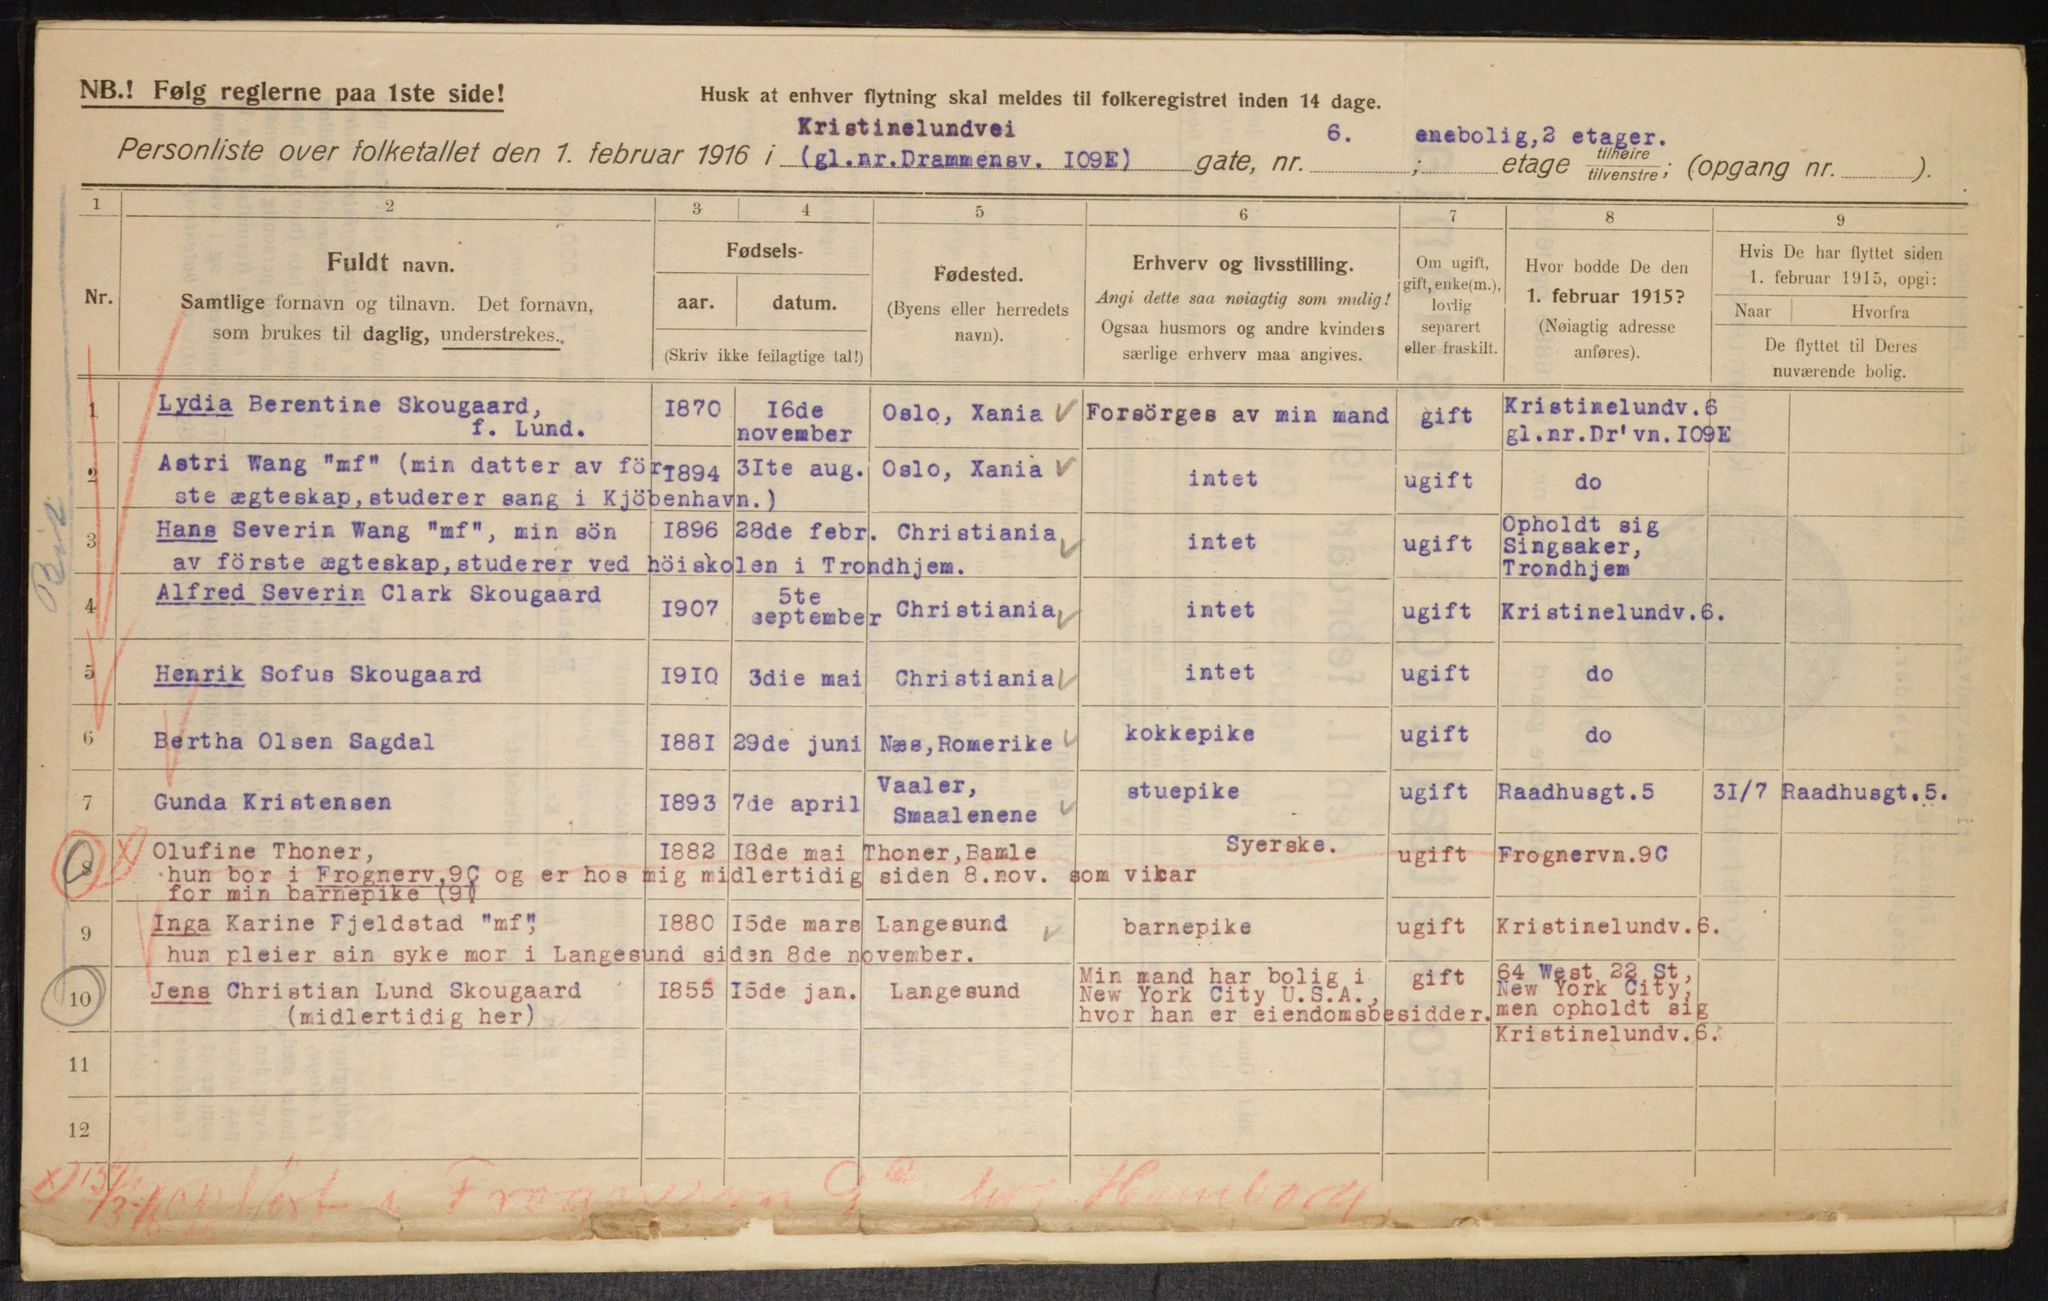 NB.! Følg reglerne paa 1ste side!
Husk at enhver flytning skal meldes til folkeregistret inden 14 dage.
Kristinelundvei 6. enebolig,2 etager.
Personliste over folketallet den 1. februar 1916 i (gl.nr.Drammensv. I09E) gate, nr. ; etage tilhøire tilvenstre; (opgang nr. ).
1 2 3 4 5 6 7 8 9
Nr.
Fuldt navn.
Samtlige fornavn og tilnavn. Det fornavn,
som brukes til daglig, understrekes.
Fødsels-
aar. datum.
(Skriv ikke feilagtige tal!)
Fødested.
(Byens eller herredets
navn).
Erhverv og livsstilling.
Angi dette saa nøiagtig som mulig!
Ogsaa husmors og andre kvinders
særlige erhverv maa angives.
Om ugift,
gift, enke(m.),
lovlig
separert
eller fraskilt.
Hvor bodde De den
1. februar 1915?
(Nøiagtig adresse
anføres).
Hvis De har flyttet siden
1. februar 1915, opgi:
Naar Hvorfra
De flyttet til Deres
nuværende bolig.
1 Lydia Berentine Skougaard, I870 I6de Oslo, Xania Forsörges av min mand gift Kristinelundv.6
f. Lund. november gl.nr.Dr'vn.I09E
2 Astri Wang "mf" (min datter av för- I894 3Ite aug. Oslo, Xania intet ugift do
ste ægteskap,studerer sang i Kjöbenhavn.)
3 Hans Severin Wang "mf", min sön I896 28de febr. Christiania intet ugift Opholdt sig
Singsaker,
av förste ægteskap,studerer ved höiskolen i Trondhjem. Trondhjem
4 Alfred Severin Clark Skougaard I907 5te september Christiania intet ugift Kristinelundv.6.
5 Henrik Sofus Skougaard I9I0 3die mai Christiania intet ugift do
6 Bertha Olsen Sagdal I88I 29de juni Næs,Romerike kokkepike ugift do
7 Gunda Kristensen I893 7de april Vaaler, Smaalenene stuepike ugift Raadhusgt.5 3I/7 Raadhusgt.5.
8 Olufine Thoner, I882 I8de mai Thoner,Bamle Syerske. ugift Frognervn.9C
hun bor i Frognerv.9C og er hos mig midlertidig siden 8.nov. som vikar
for min barnepike (9)
9 Inga Karine Fjeldstad "mf", I880 I5de mars Langesund barnepike ugift Kristinelundv.6.
hun pleier sin syke mor i Langesund siden 8de november.
10 Jens Christian Lund Skougaard I855 I5de jan. Langesund Min mand har bolig i gift 64 West 22 St,
New York City U.S.A., New York City,
(midlertidig her) hvor han er eiendomsbesidder. men opholdt sig
Kristinelundv.6.
11
12
opfört i Frognervn 9 c. hos